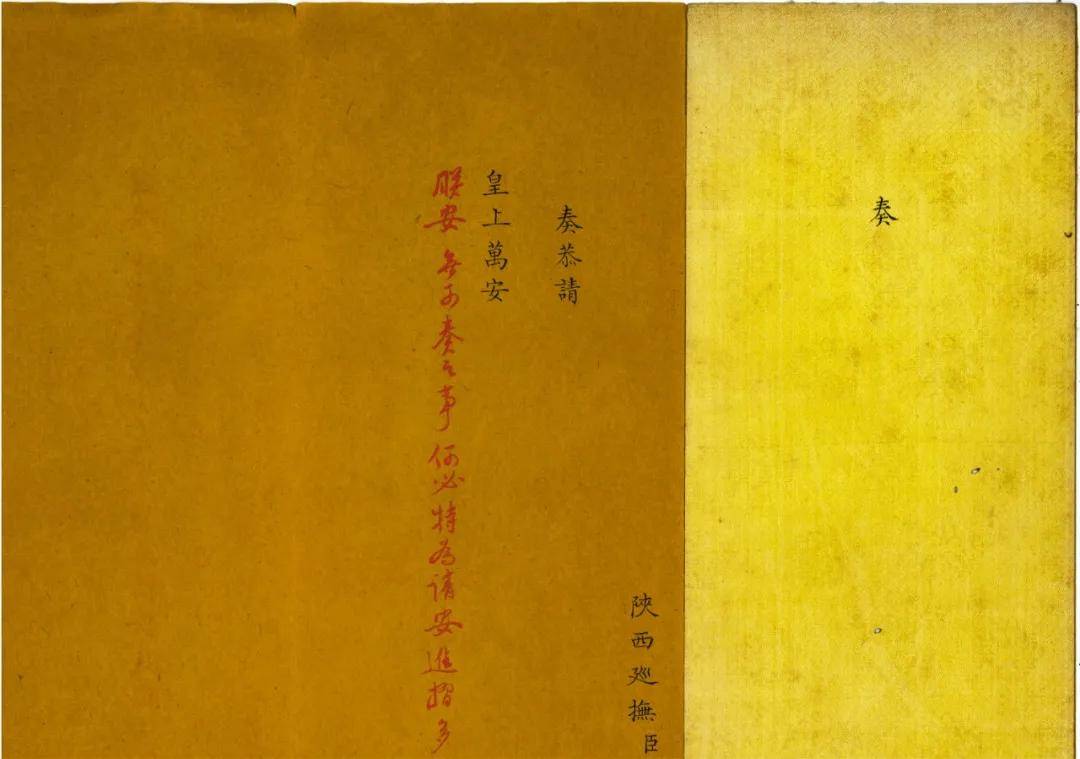 奏
陝西廵撫臣
奏恭請
皇上萬安
朕安無可奏之事何必特為請安進摺多